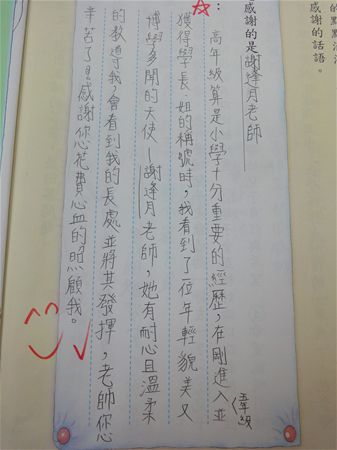 的點點滴
感謝的話語。
感謝的是謝逢月老師
：
高年級算是小學十分重要的經歷，在剛進入並
獲得學長、姐的稱號時，我看到了一位年輕貌美又
博學多聞的天使—謝逢月老師，她有耐心且溫柔
的教導我，會看到我的長處並將其發揮，老師您
辛苦了！感謝您花費心血的照顧我。